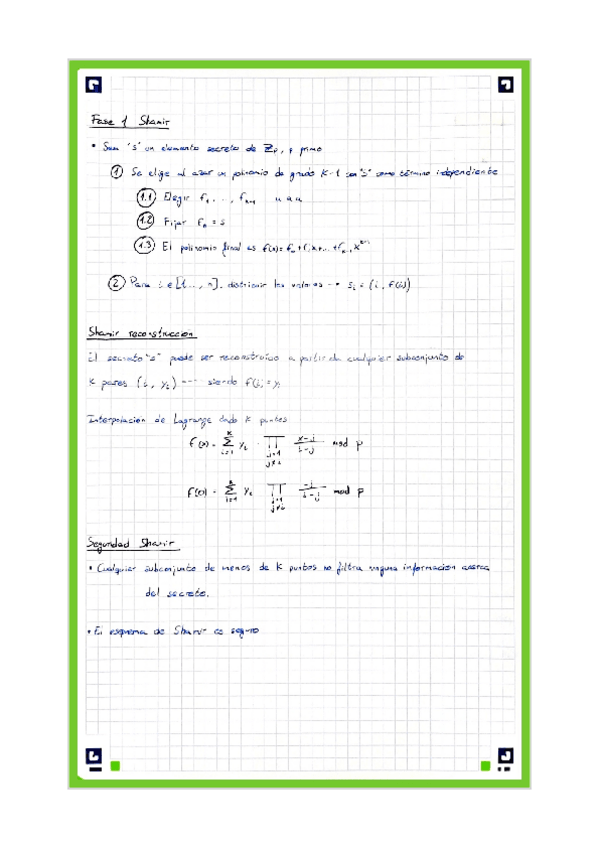 Fase 1 Shamir
• Sea 's' un elemento secreto de Zp, p primo
① Se elige al azar un polinomio de grado K-1 con "s" como término independiente
1.1 Elegir f₁, ..., fₖ₋₁ u a u
1.2 Fijar f₀ = s
1.3 El polinomio final es f(x) = f₀ + f₁x + ... + fₖ₋₁xᵏ⁻¹
② Para i ∈ [1..., n], distribuir los valores → sᵢ = (i, f(i))
Shamir reconstrucción
El secreto "s" puede ser reconstruido a partir de cualquier subconjunto de
K pares (i, yᵢ) ---- siendo f(i) = yᵢ
Interpolación de Lagrange dado K puntos
f(x) = Σ_{i=1}^{K} yᵢ · ∏_{j=1, j≠i} (x-j)/(i-j) mod p
f(0) = Σ_{i=1}^{K} yᵢ ∏_{j=1, j≠i} (-j)/(i-j) mod p
Seguridad Shamir
• Cualquier subconjunto de menos de K puntos no filtra ninguna información acerca
del secreto.
• El esquema de Shamir es seguro